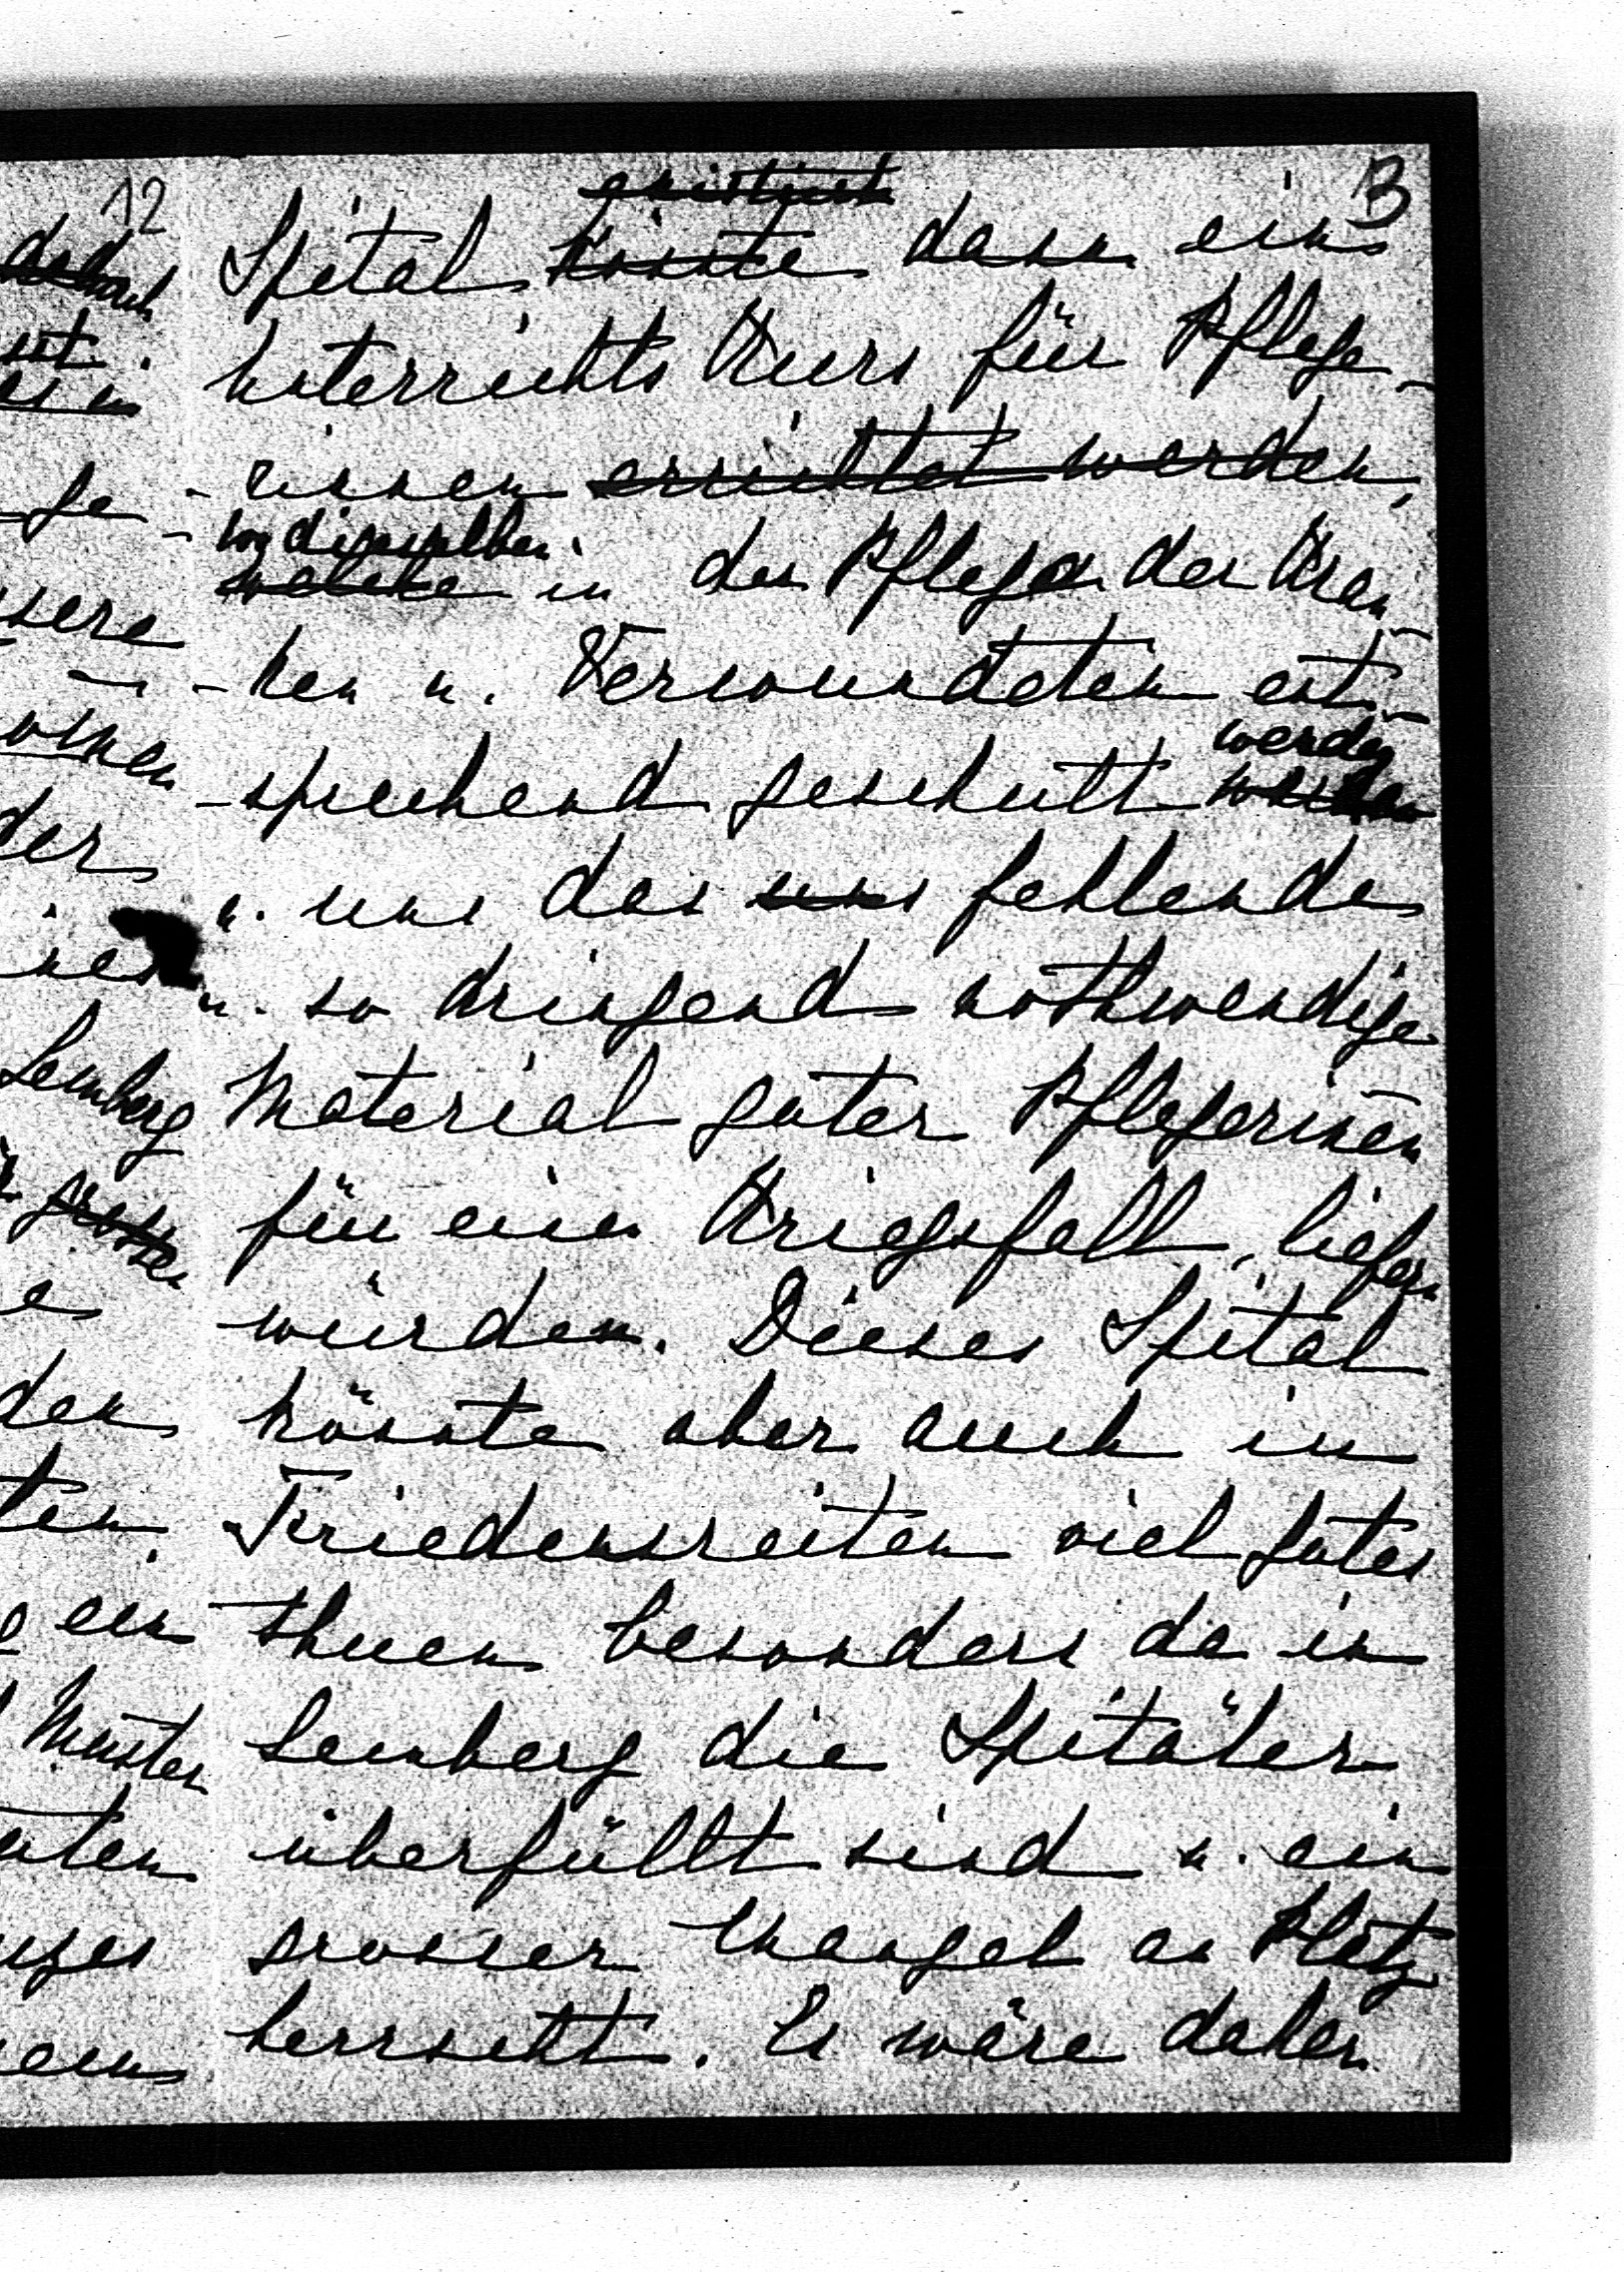 12
13
existirt
Spital könnte dann ein
Unterrichts Kurs für Pflege-
-rinnen errichtet werden,
wo dieselben
welche in der Pflege der Kran-
-ken u. Verwundeten ent-
werden
-sprechend geschult
u. uns das uns fehlende
u. so dringend nothwendige
Material guter Pflegerinen
für einen Kriegsfall, liefern
würden. Dieses Spital
könnte aber auch in
Friedenszeiten viel gutes
thuen besonders da in
Lemberg die Spitäler
überfüllt sind u. ein
grosser Mangel an Platz
herrscht. Es wäre daher
ge-
der
Lemberg
grosse
es
den
ten.
ein
Muster